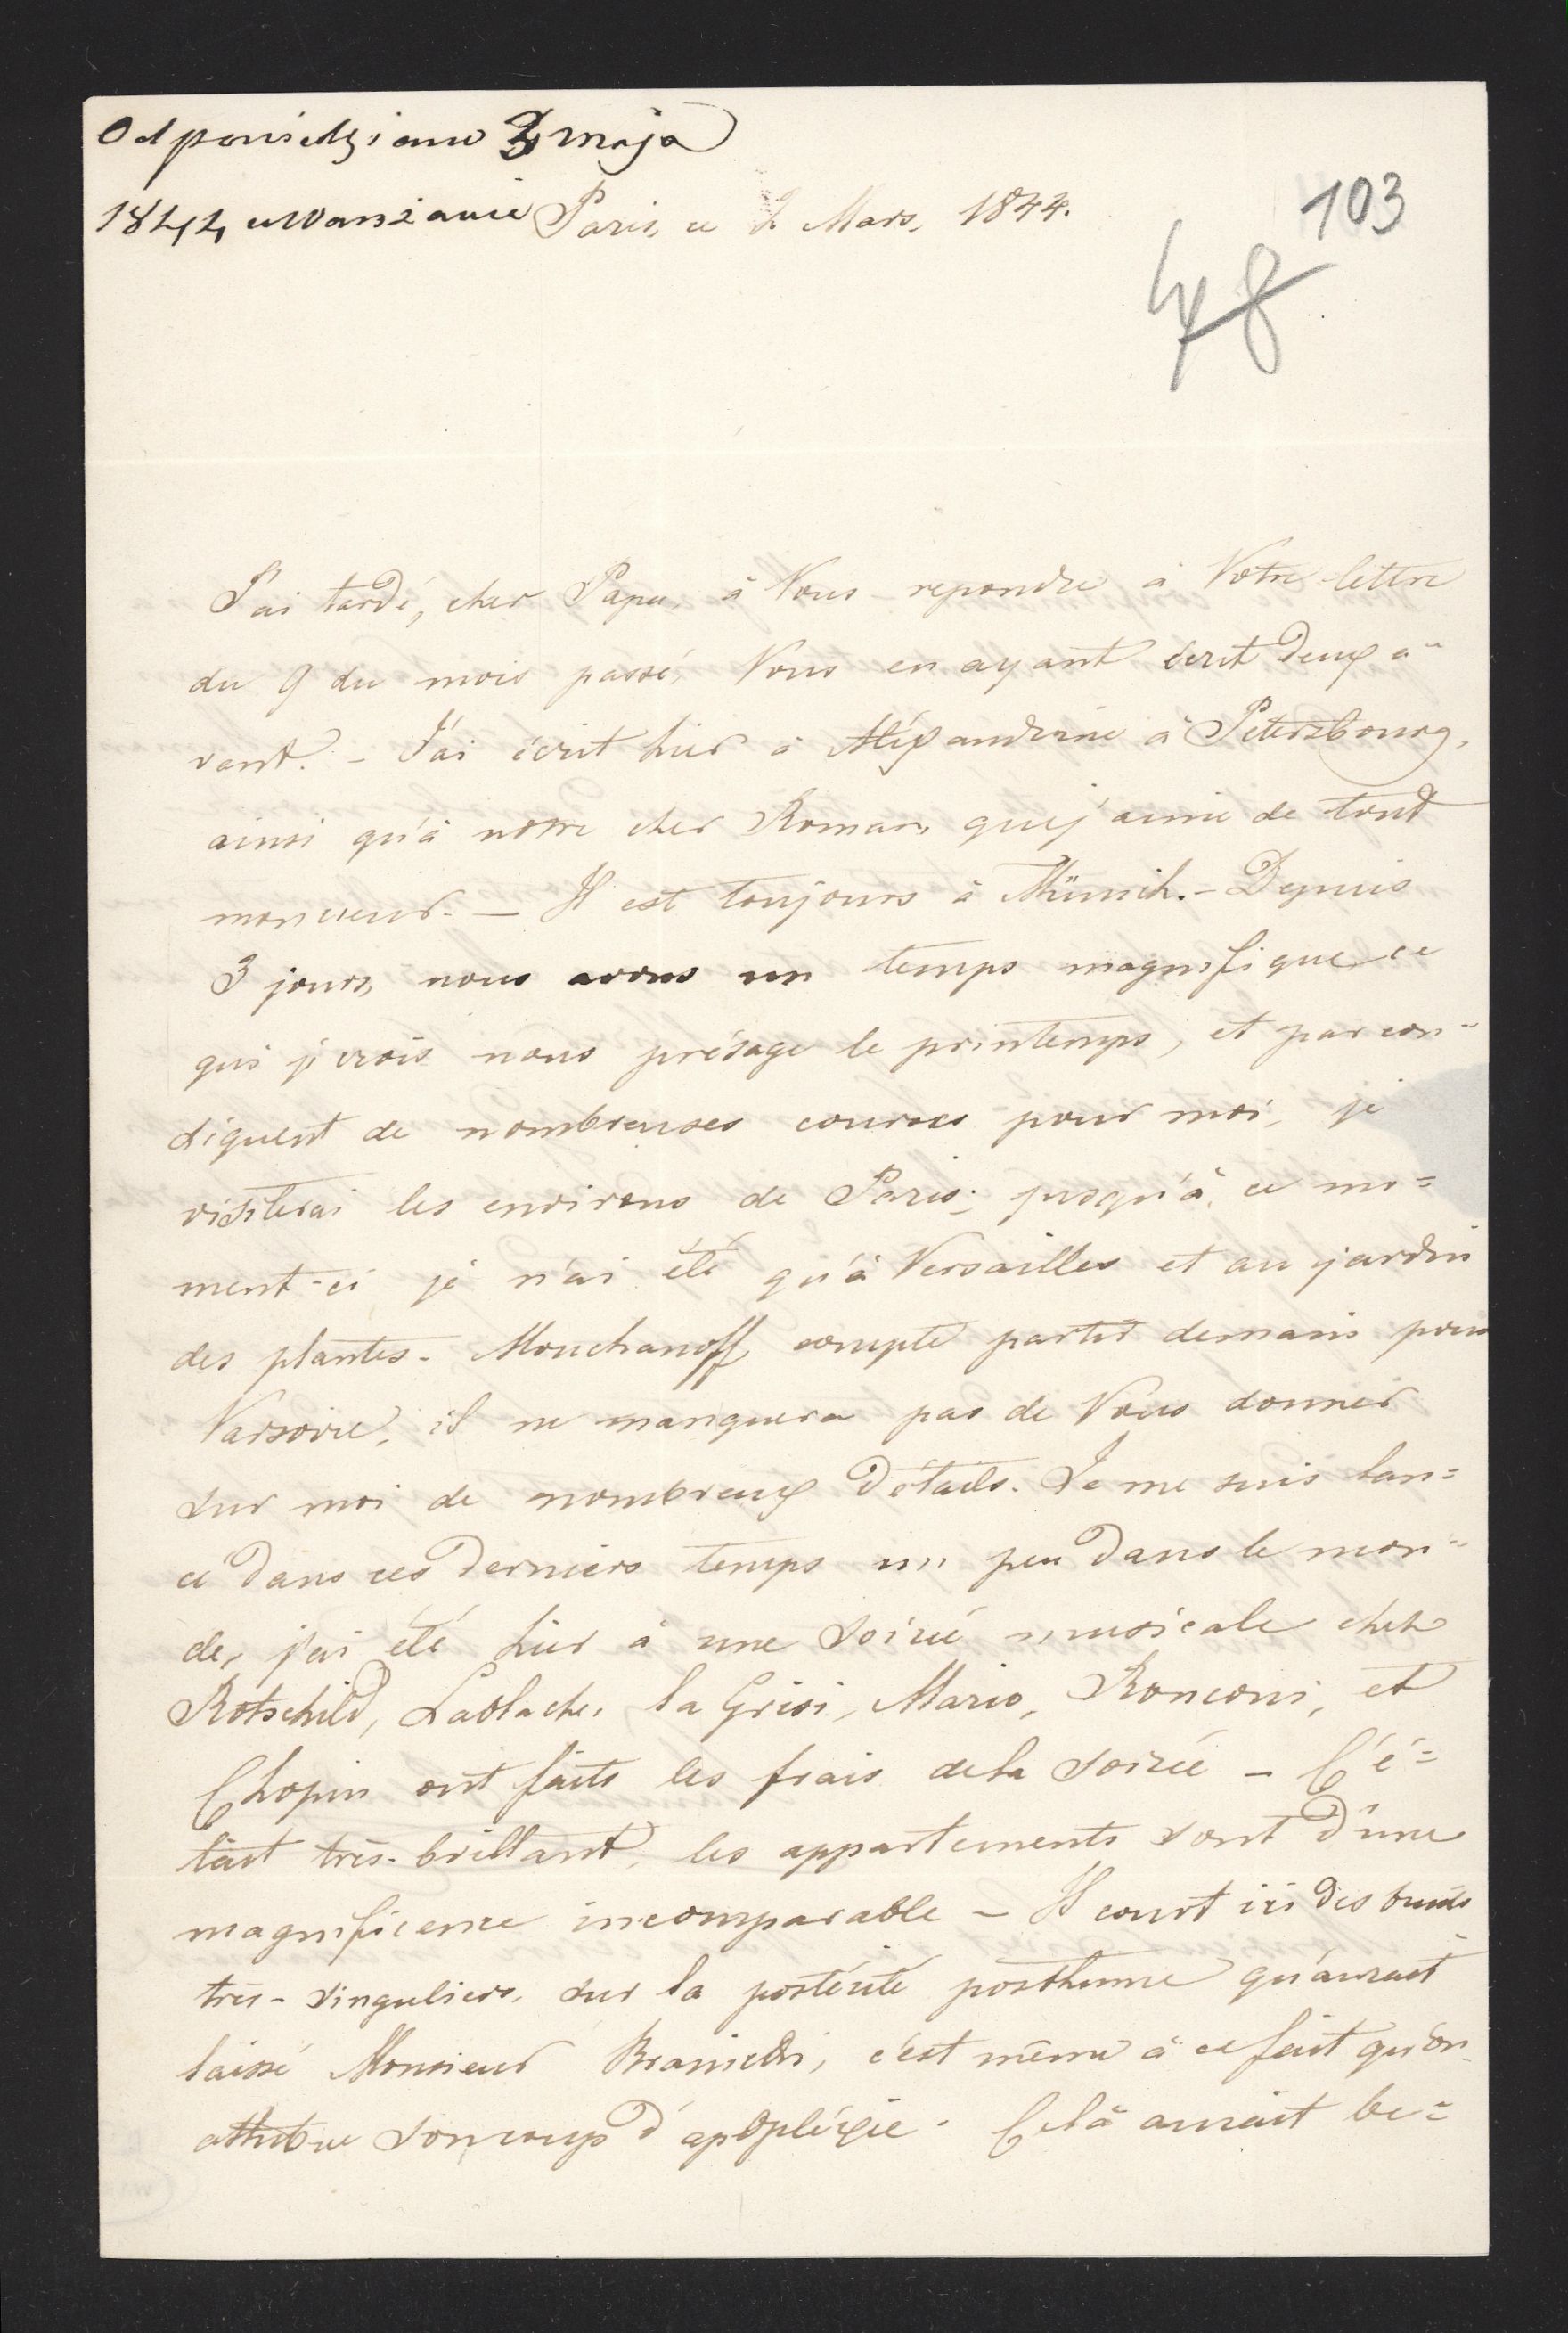 Odpowiedziano 3 maja
1844 w Warszawie Paris, ce 2 Mars, 1844.
103
48
J'ai tardé, cher Papa, à Vous repondre à Votre lettre
du 9 du mois passé, Vous en ayant écrit deux a-
vant. - J'ai écrit hier à Aléxandrine à Petersbourg,
ainsi qu'à notre cher Roman, que j'aime de tout
mon coeur. - Il est toujours à Münich. - Depuis
3 jours, nous avons un temps magnifique, ce
qui j'crois nous présage le printemps, et par con-
siquent de nombreuses courses pour moi, je
visiterai les environs de Paris; jusqu'à ce mo=
ment-ci je n'ai été qu'à Versailles et au jardin
des plantes. Mouchanoff compte partir demain pour
Varsovie, il ne manquera pas de Vous donner
sur moi de nombreux détails. Je me suis lan=
cé dans ces derniers temps un peu dans le mon-
de, j'ai été hier à une soirée musicale chez
Rotschild, Lablache, la Grisi, Mario, Ronconi, et
Chopin ont faits les frais de la soirée - C'é=
tait très-brillant, les appartements sont d'une
magnificence incomparable - Il court ici des bruits
très-singuliers, sur la postérité posthume qu'aurait
laissé Monsieur Branicki, c'est même à ce fait qu'on
attribue son coup d'apopléxie. Celà aurait be=